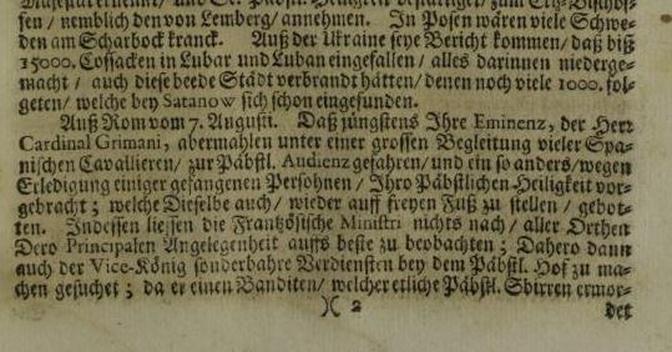 sen / nemblich den von Lemberg / annehmen. In Posen wären viele Schwe-
den am Scharbock kranck. Auß der Ukraine seye Bericht kommen / daß biß
15000. Cossacken in Lubar und Luban eingefallen / alles darinnen niederge-
macht / auch diese beede Städt verbrandt hätten / denen noch viele 1000. fol-
geten / welche bey Satanow sich schon eingefunden.
Auß Rom vom 7. Augusti. Daß jüngstens Ihre Eminenz, der Herr
Cardinal Grimani, abermahlen unter einer grossen Begleitung vieler Spa-
nischen Cavallieren / zur Päbstl. Audienz gefahren / und ein so anders / wegen
Erledigung einiger gefangenen Persohnen / Ihro Päbstlichen Heiligkeit vor-
gebracht ; welche Dieselbe auch / wieder auff freyen Fuß zu stellen / gebot-
ten. Indessen liessen die Frantzösische Ministri nichts nach / aller Orthen
Dero Principalen Angelegenheit auffs beste zu beobachten ; Dahero dann
auch der Vice-König sonderbahre Verdiensten bey dem Päbstl. Hof zu ma-
chen gesuchet ; da er einen Banditen / welcher etliche Päbstl. Sbirren ermor-
)( 2 det